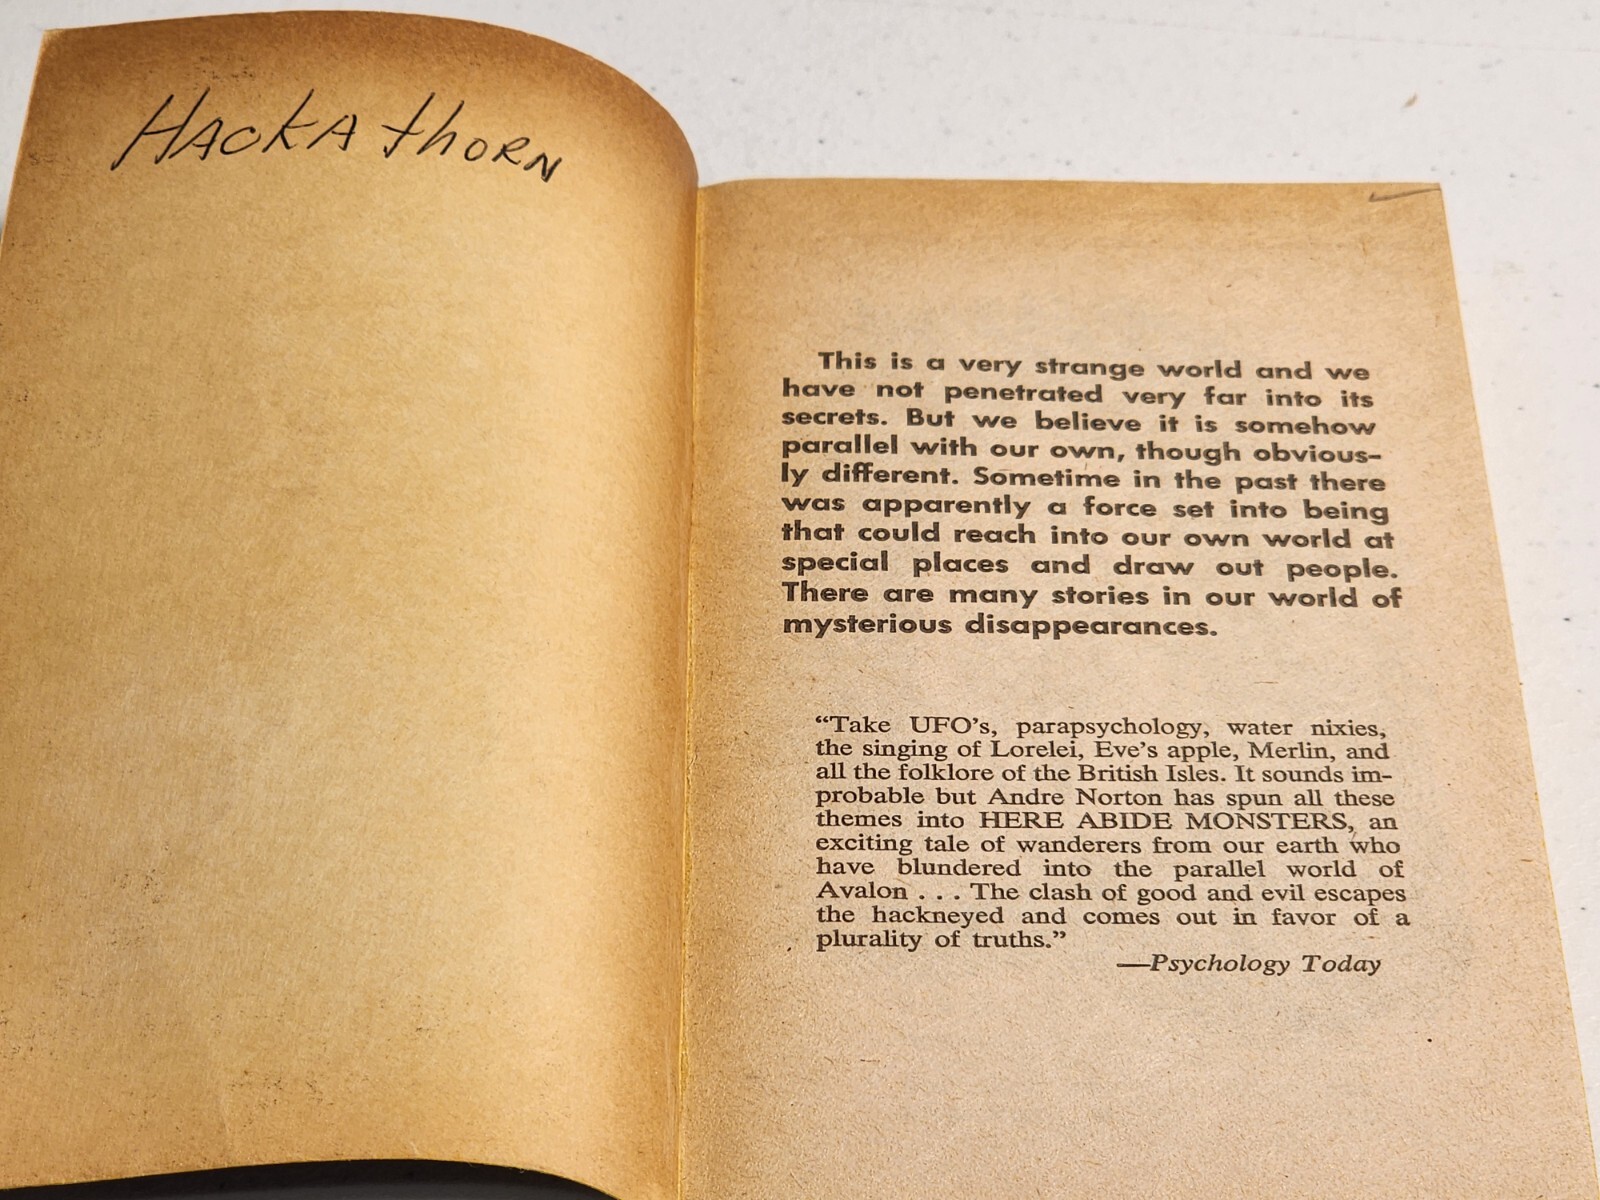 HACKAthORN
This is a very strange world and we
have not penetrated very far into its
secrets. But we believe it is somehow
parallel with our own, though obvious-
ly different. Sometime in the past there
was apparently a force set into being
that could reach into our own world at
special places and draw out people.
There are many stories in our world of
mysterious disappearances.
“Take UFO’s, parapsychology, water nixies,
the singing of Lorelei, Eve’s apple, Merlin, and
all the folklore of the British Isles. It sounds im-
probable but Andre Norton has spun all these
themes into HERE ABIDE MONSTERS, an
exciting tale of wanderers from our earth who
have blundered into the parallel world of
Avalon . . . The clash of good and evil escapes
the hackneyed and comes out in favor of a
plurality of truths.”
—Psychology Today